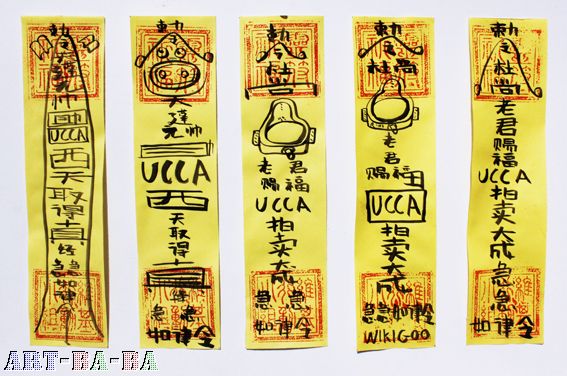 敕令
大達
元帅
UCCA
西
天
取
得
真
經
急急
如律令
敕
令
大達
元帅
UCCA
西
天取得
急急
如律令
敕
令
杜尚
老君
赐福
UCCA
拍
卖
大
成
急急
如律令
敕
令
杜尚
老君
赐福
UCCA
拍
卖
大
成
急急如律令
WIKIGOO
敕
令
杜
尚
老
君
赐
福
UCCA
拍
卖
大
成
急
急
如律令
ART-BA-BA